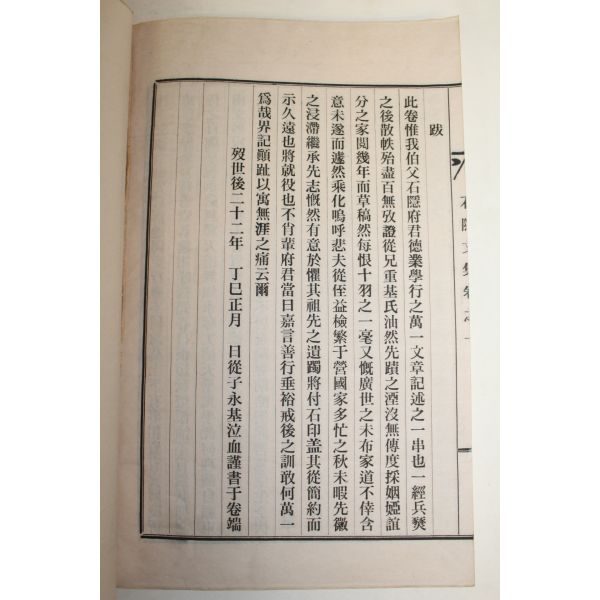 石隱文集卷之
跋
此卷惟我伯父石隱府君德業學行之萬一文章記述之一串也一經兵燹
之後散帙殆盡百無攷證從兄重基氏油然先蹟之湮沒無傳度採姻婭誼
分之家閱幾年而草稿然每恨十羽之一毫又慨廣世之未布家道不倖含
意未遂而遽然乘化嗚呼悲夫從侄益檢繁于營國家多忙之秋未暇先徽
之浸滯繼承先志慨然有意於懼其祖先之遺躅將付石印盖其從簡約而
示久遠也將就役也不肖輩府君當日嘉言善行垂裕戒後之訓敢何萬一
爲哉畧記顚趾以寓無涯之痛云爾
歿世後二十二年 丁巳正月 日從子永基泣血謹書于卷端